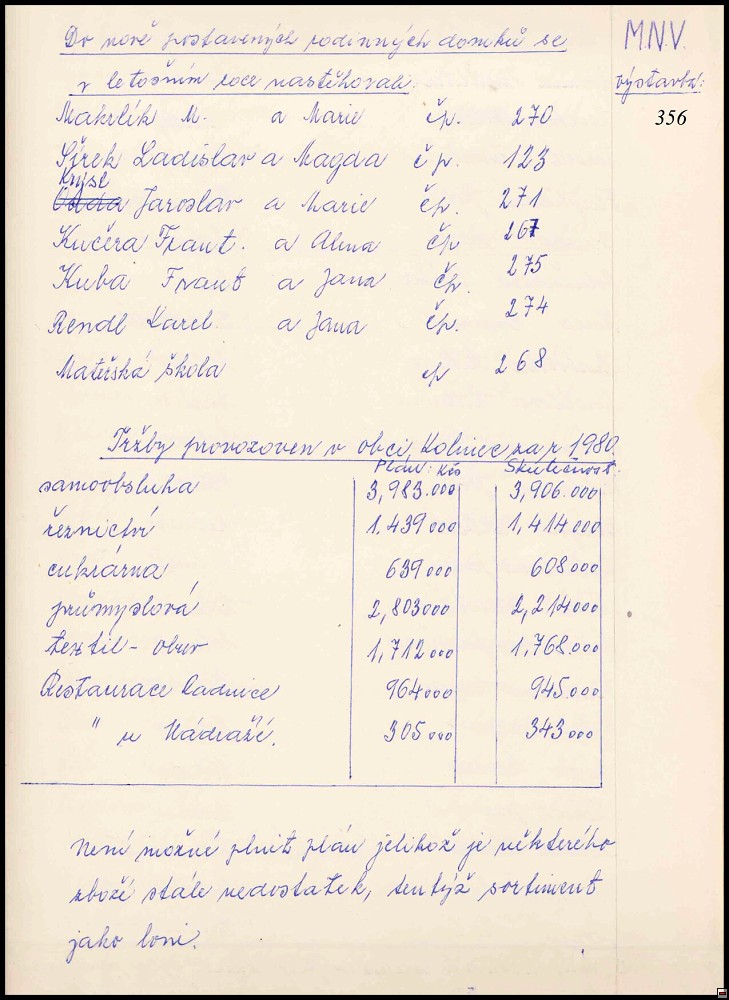 Do nově postavených rodinných domků se
v letošním roce nastěhovali:
M.N.V.
výstavba:
356
Makrlík M. a Marie čp. 270
Šírek Ladislav a Magda čp. 123
Kryse
Jaroslav a Marie čp. 271
Kučera Frant. a Alena čp 267
Kuba Frant a Jana čp. 275
Rendl Karel a Jana čp. 274
Mateřská škola čp 268
Tržby provozoven v obci Kolinec za r 1980.
Plán: Kčs Skutečnost:
samoobsluha 3,983.000 3,906.000
řeznictví 1.439000 1,414000
cukrárna 639000 608000
průmyslová 2,803000 2,214000
textil - obuv 1,712000 1,768.000
Restaurace Radnice 964000 945000
" u Nádraží. 305000 343000
Není možné plnit plán jelikož je některého
zboží stále nedostatek, tentýž sortiment
jako loni.